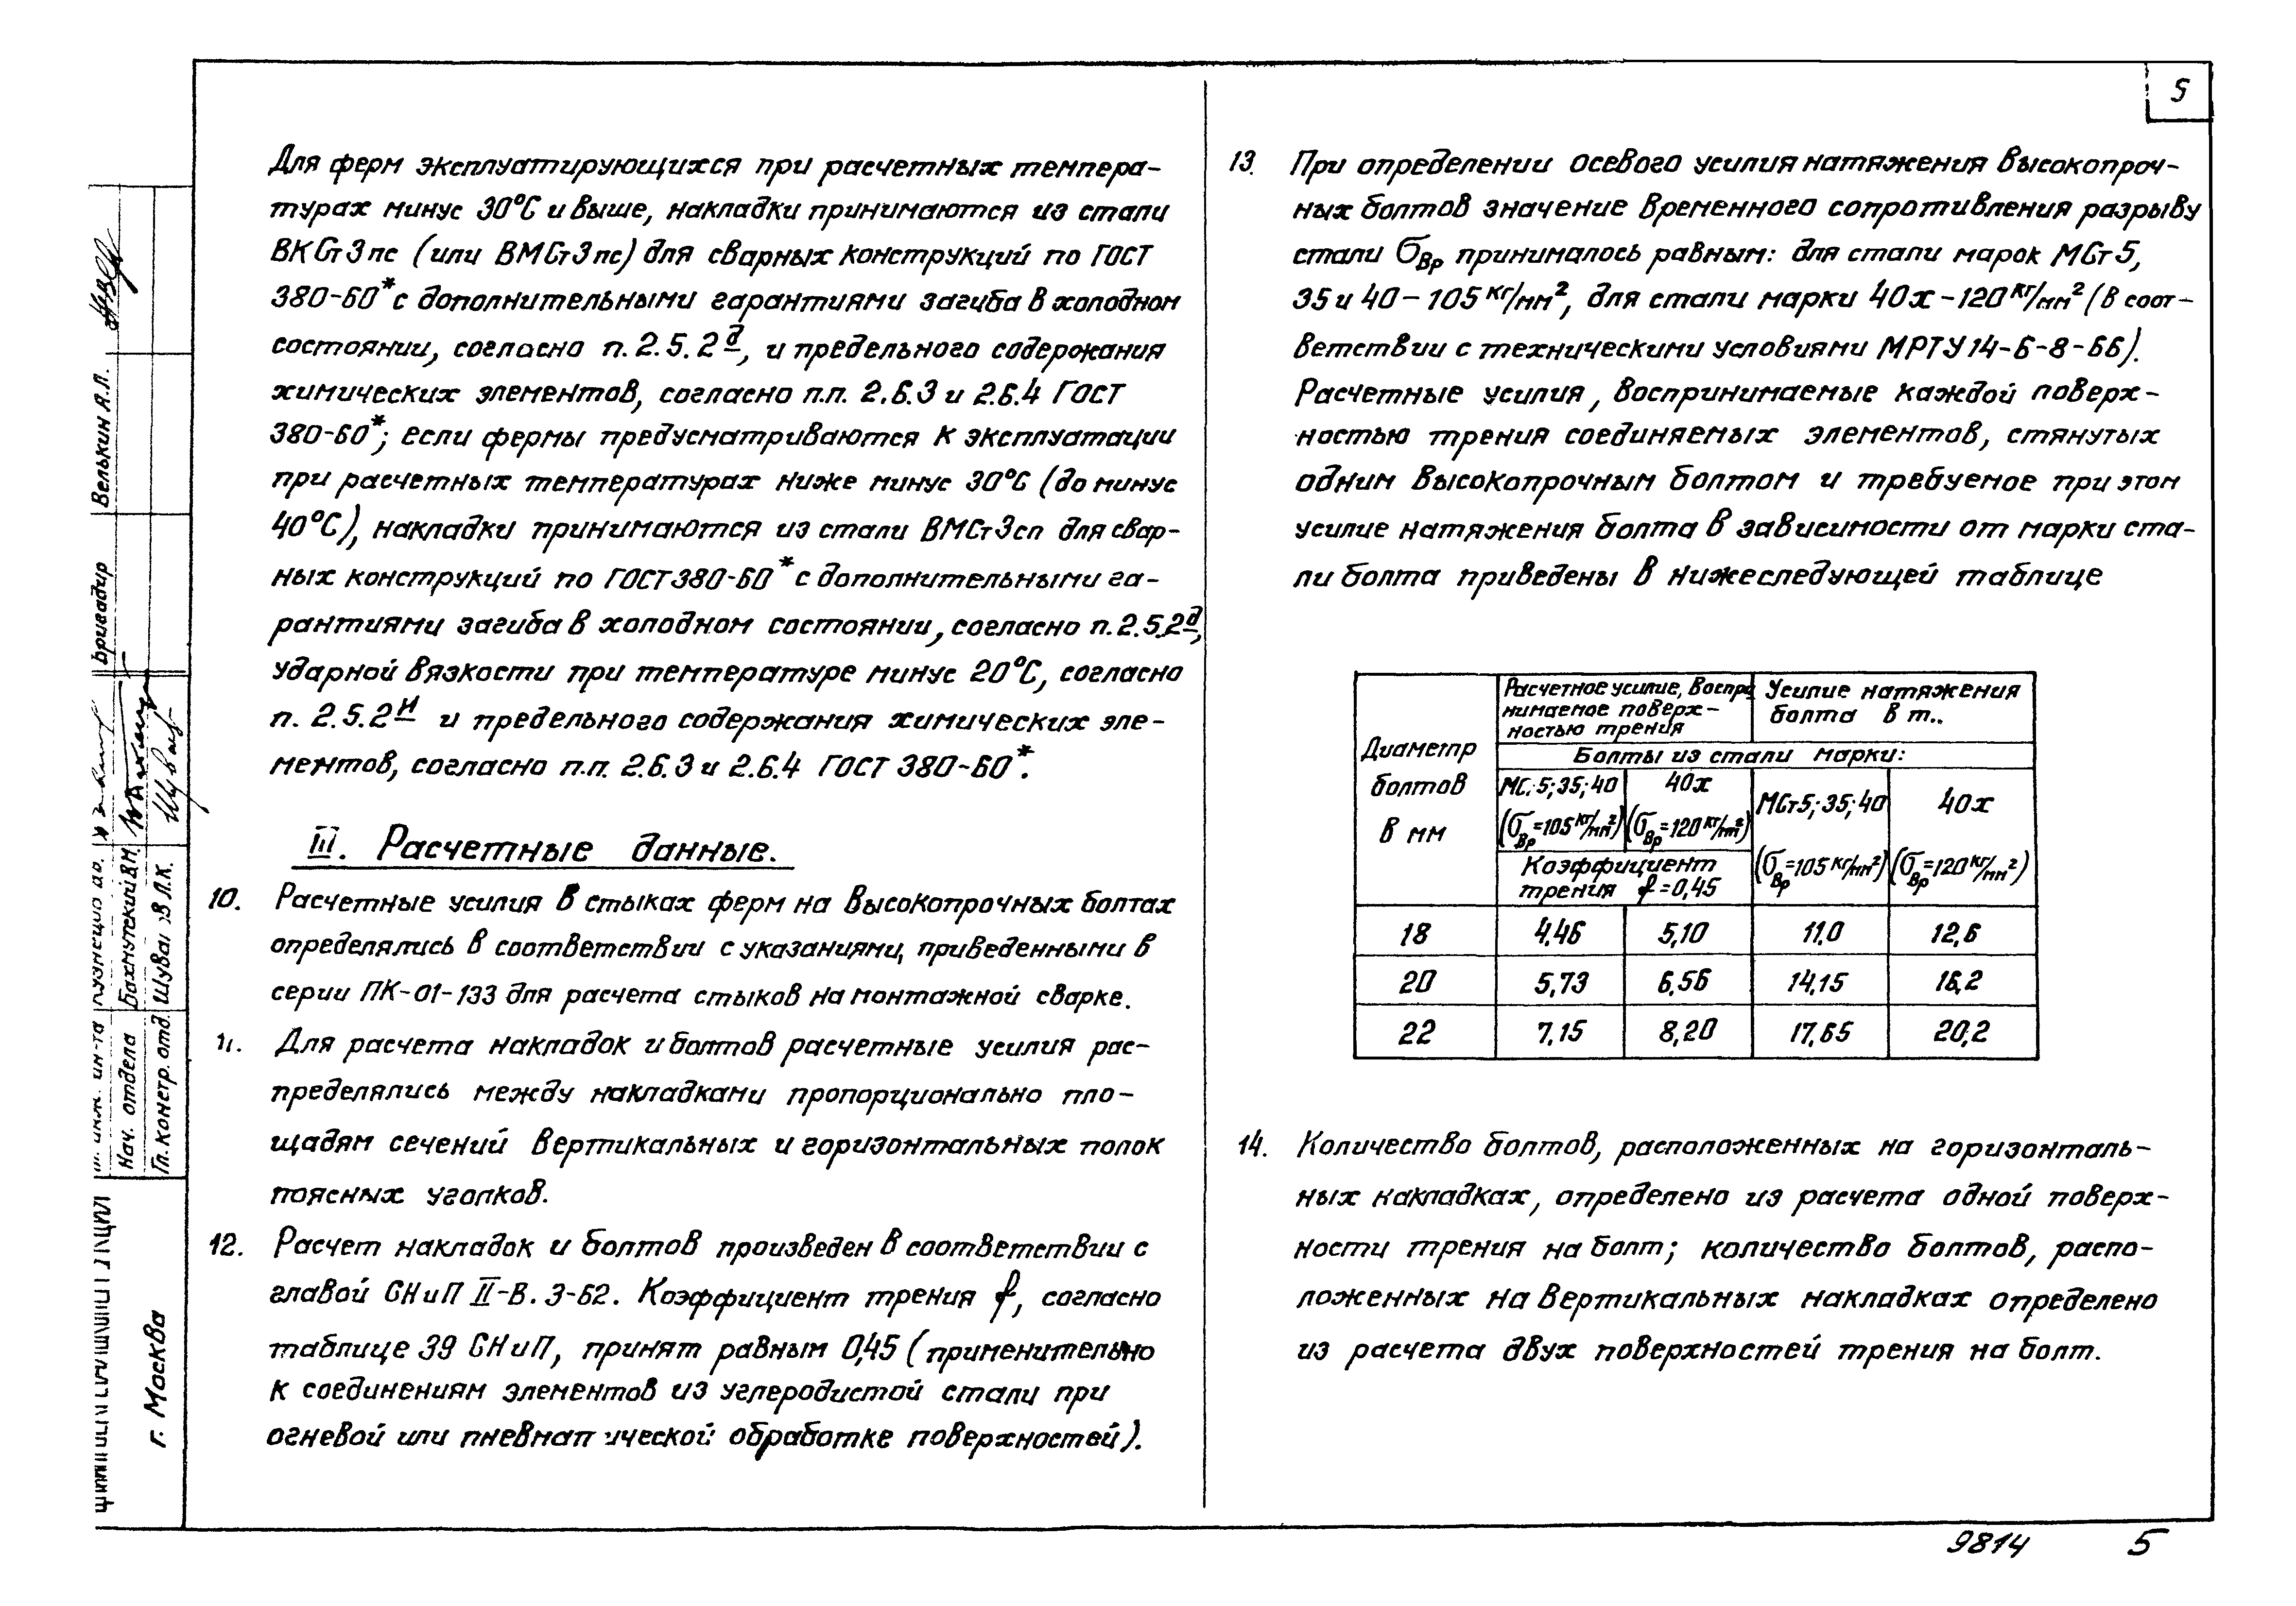 5
Для ферм эксплуатирующихся при расчетных темпера-
турах минус 30°С и выше, накладки принимаются из стали
ВКСт3пс (или ВМСт3пс) для сварных конструкций по ГОСТ
380-60* с дополнительными гарантиями загиба в холодном
состоянии, согласно п. 2.5.2д, и предельного содержания
химических элементов, согласно п.п. 2.6.3 и 2.6.4 ГОСТ
380-60*; если фермы предусматриваются к эксплуатации
при расчетных температурах ниже минус 30°С (до минус
40°С), накладки принимаются из стали ВМСт3сп для свар-
ных конструкций по ГОСТ380-60* с дополнительными га-
рантиями загиба в холодном состоянии, согласно п. 2.5.2д,
ударной вязкости при температуре минус 20°С, согласно
п. 2.5.2и и предельного содержания химических эле-
ментов, согласно п.п. 2.6.3 и 2.6.4 ГОСТ 380-60*.
III. Расчетные данные.
10. Расчетные усилия в стыках ферм на высокопрочных болтах
определялись в соответствии с указаниями, приведенными в
серии ПК-01-133 для расчета стыков на монтажной сварке.
11. Для расчета накладок и болтов расчетные усилия рас-
пределялись между накладками пропорционально пло-
щадям сечений вертикальных и горизонтальных полок
поясных уголков.
12. Расчет накладок и болтов произведен в соответствии с
главой СНиП II-В. 3-62. Коэффициент трения f, согласно
таблице 39 СНиП, принят равным 0,45 (применительно
к соединениям элементов из углеродистой стали при
огневой или пневматической обработке поверхностей).
13. При определении осевого усилия натяжения высокопроч-
ных болтов значение временного сопротивления разрыву
стали σвр принималось равным: для стали марок МСт5,
35 и 40 - 105 кг/мм², для стали марки 40х - 120 кг/мм² (в соот-
ветствии с техническими условиями МРТУ 14-6-8-66).
Расчетные усилия, воспринимаемые каждой поверх-
ностью трения соединяемых элементов, стянутых
одним высокопрочным болтом и требуемое при этом
усилие натяжения болта в зависимости от марки ста-
ли болта приведены в нижеследующей таблице
Диаметр
болтов
в мм
Расчетное усилие, воспри
нимаемое поверх-
ностью трения
Усилие натяжения
болта в т..
Болты из стали марки:
МС. 5; 35; 40
(σвр=105 кг/мм²)
40х
(σвр=120 кг/мм²)
МСт5; 35; 40
(σвр=105 кг/мм²)
40х
(σвр=120 кг/мм²)
Коэффициент
трения f=0,45
18 4,46 5,10 11,0 12,6
20 5,73 6,56 14,15 16,2
22 7,15 8,20 17,65 20,2
14. Количество болтов, расположенных на горизонталь-
ных накладках, определено из расчета одной поверх-
ности трения на болт; количество болтов, распо-
ложенных на вертикальных накладках определено
из расчета двух поверхностей трения на болт.
Бригадир Велькин А.Л.
Нач. отдела Бахмутский В.М.
Гл. констр. отд.
г. Москва
9814 5